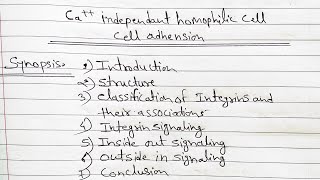 Ca++ independant homophilic cell
cell adhension
Synopsis:- 1) Introduction
2) Structure
3) Classification of Integrins and
their associations
4) Integrin signaling
5) Inside out signaling
6) Outside in signaling
7) Conclusion